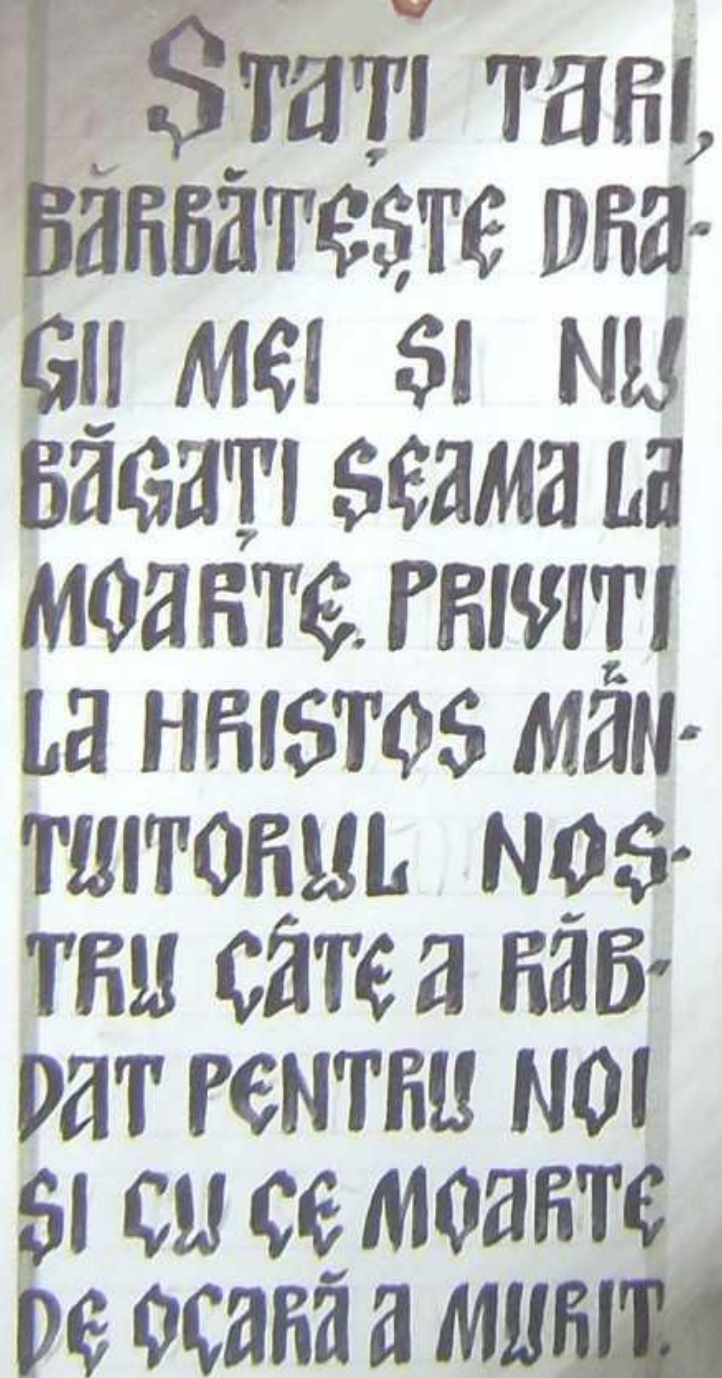 STAȚI TARI,
BĂRBĂTEȘTE DRA-
GII MEI SI NU
BĂGAȚI SEAMA LA
MOARTE. PRIVITI
LA HRISTOS MÂN-
TUITORUL NOS-
TRU CÂTE A RĂB-
DAT PENTRU NOI
SI CU CE MOARTE
DE OCARĂ A MURIT.